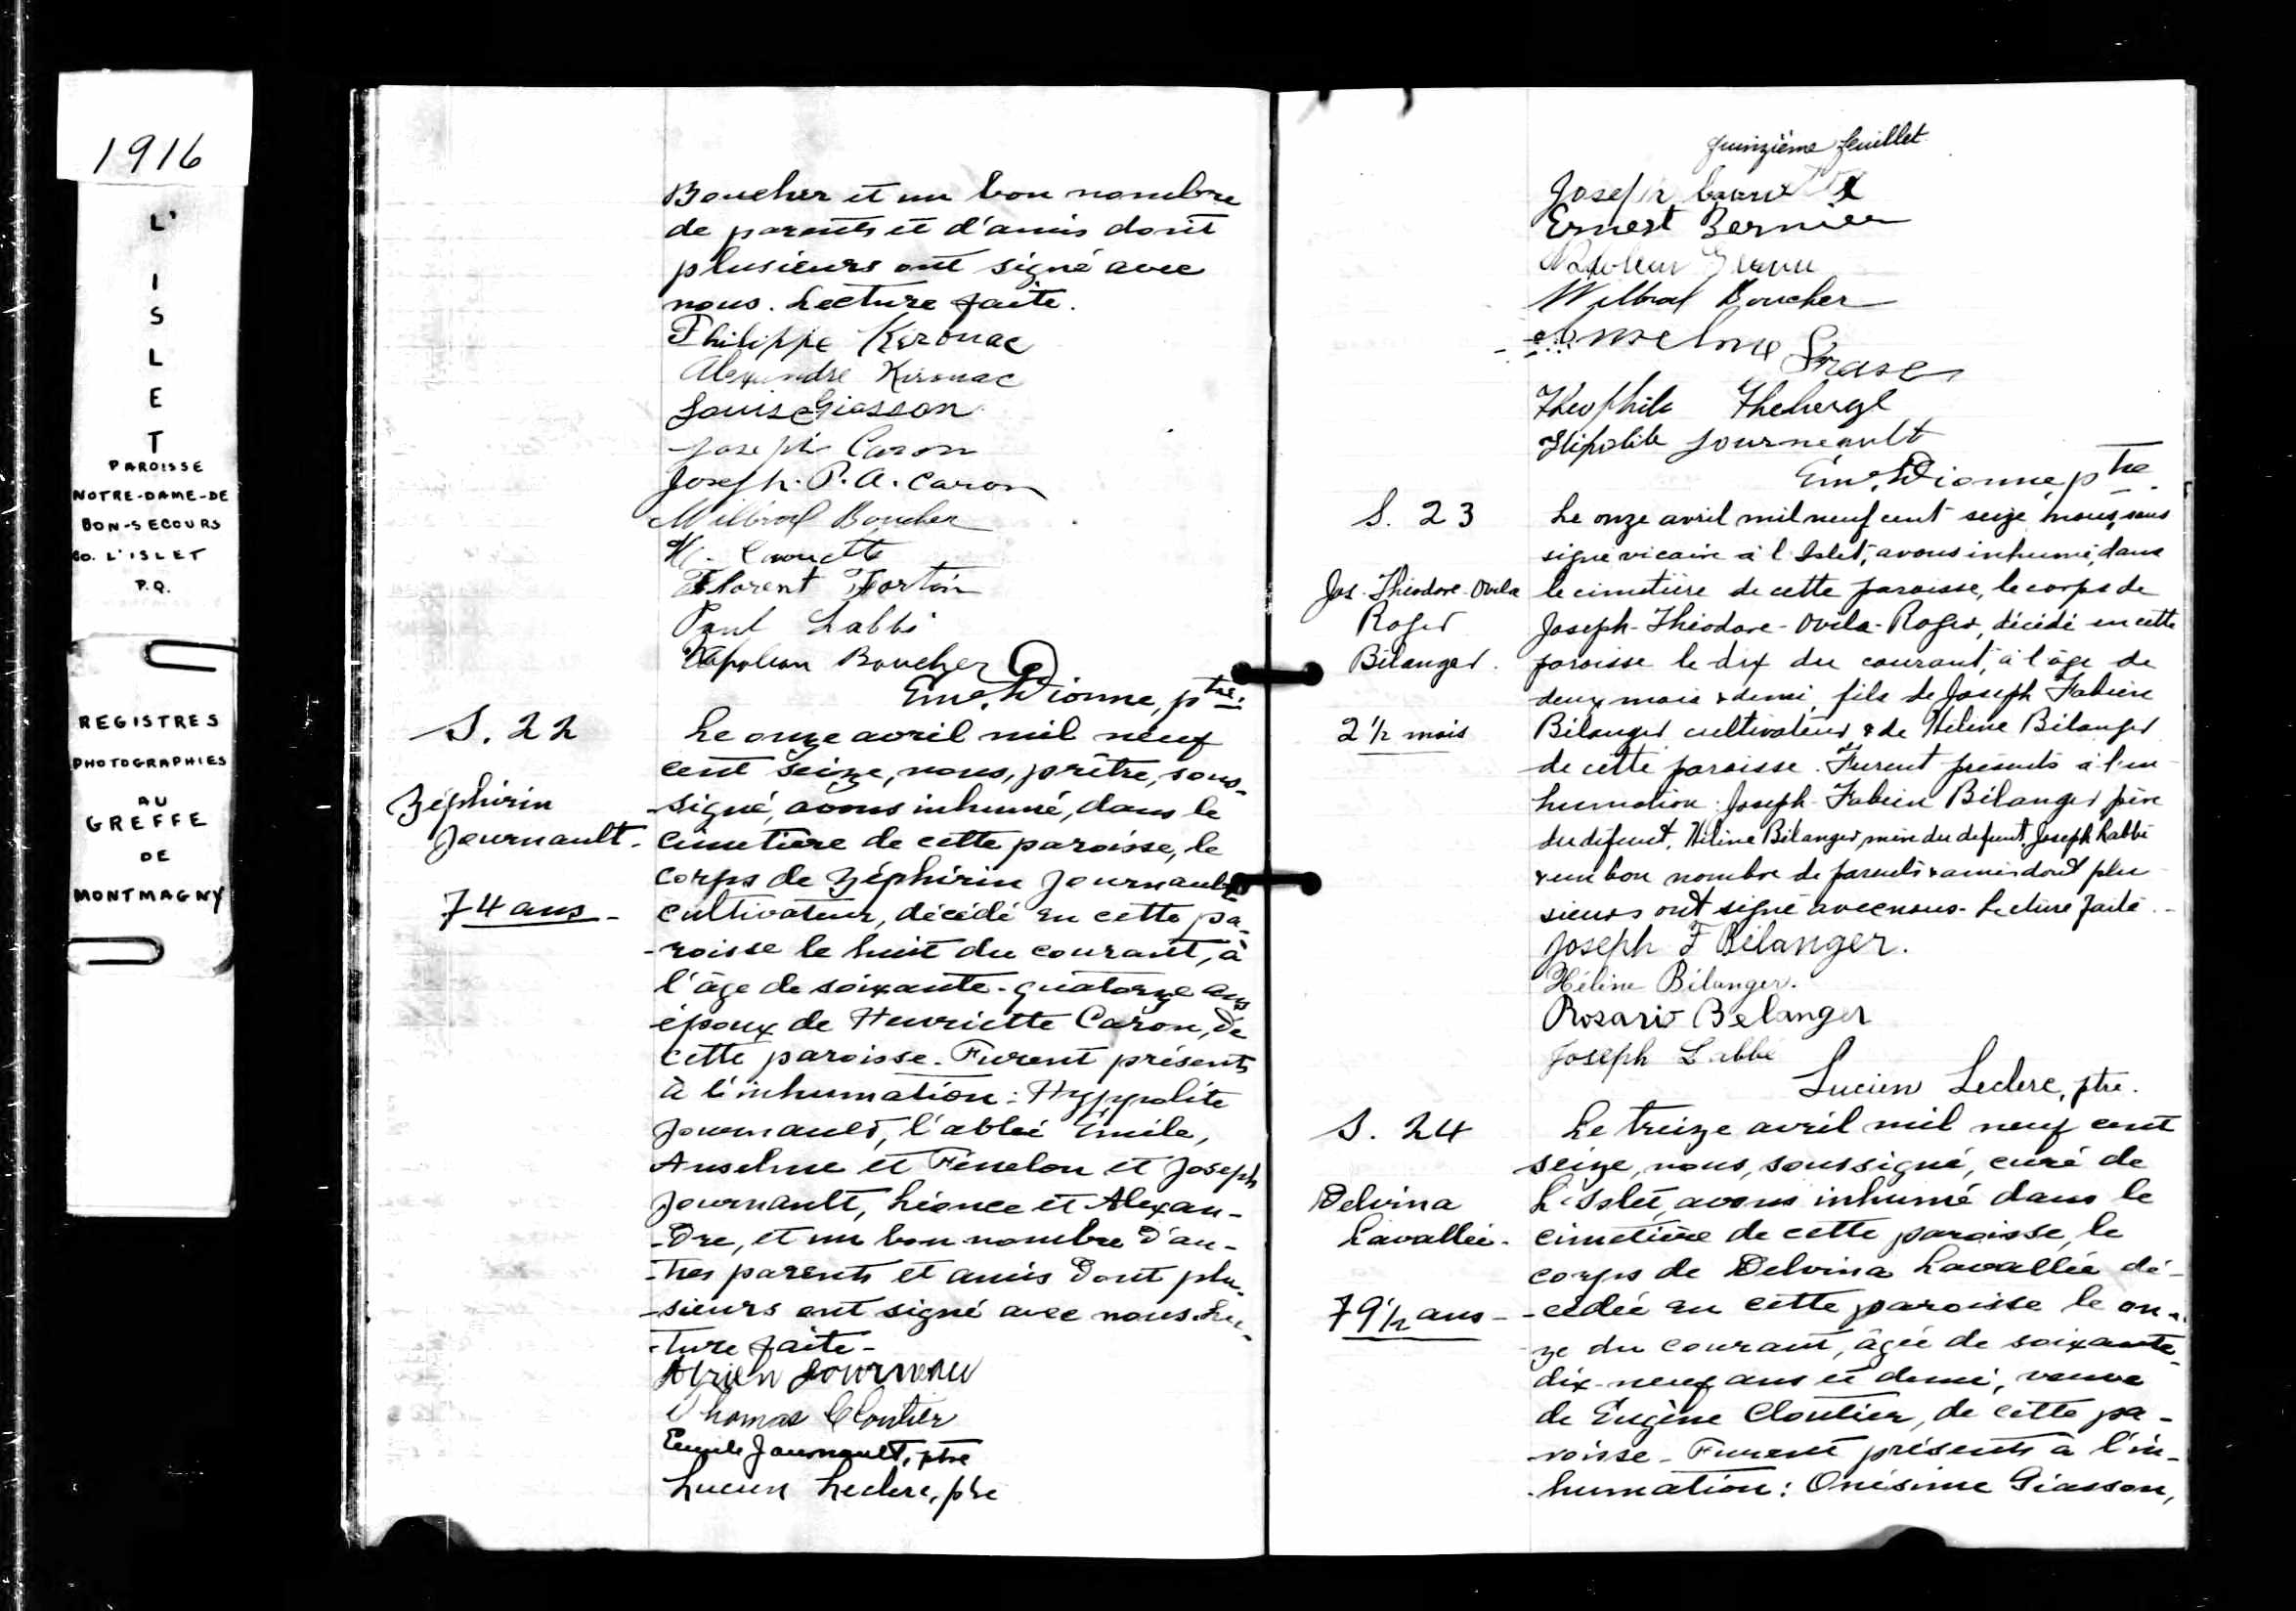 1916
L'
I
S
L
E
T
PAROISSE
NOTRE-DAME-DE
BON-SECOURS
CO. L'ISLET
P.Q.
REGISTRES
PHOTOGRAPHIES
AU
GREFFE
DE
MONTMAGNY
Boucher et un bon nombre
de parents et d'amis dont
plusieurs ont signé avec
nous. Lecture faite.
Philippe Kirouac
Alexandre Kirouac
Louis Giasson
Joseph Caron
Joseph. P. A. Caron
Wilbrod Boucher
Caouette
Florent Fortin
Paul Labbé
Napoléon Boucher
Em. Dionne, ptre.
S. 22
Zéphirin
Journault.
74 ans -
Le onze avril mil neuf
cent seize, nous, prêtre, sous-
-signé, avons inhumé, dans le
cimetière de cette paroisse, le
corps de Zéphirin Journault
cultivateur, décédé en cette pa-
-roisse le huit du courant, à
l'âge de soixante-quatorze ans
époux de Henriette Caron, de
cette paroisse. Furent présents
à l'inhumation: Hyppolite
Journault, l'abbé Emile,
Anselme et Fénelon et Joseph
Journault, Léonce et Alexan-
-dre, et un bon nombre d'au-
-tres parents et amis dont plu-
-sieurs ont signé avec nous. Lec-
-ture faite-
Journeau
Thomas Cloutier
Emile Journault, ptre
Lucien Leclerc, ptre
quinzième feuillet
Joseph
Ernest Bernier
Wilbrod Boucher
Anselme
Théophile Theberge
Hipolite Journeault
Em. Dionne, ptre.
S. 23
Jos. Théodore-Ovila
Roger
Bélanger.
2 1/2 mois
Le onze avril mil neuf cent seize, nous, sous
signé vicaire à l'Islet, avons inhumé, dans
le cimetière de cette paroisse, le corps de
Joseph-Théodore-Ovila-Roger, décédé en cette
paroisse le dix du courant, à l'âge de
deux mois & demi, fils de Joseph Fabien
Bélanger cultivateur & de Hélène Bélanger
de cette paroisse. Furent présents à l'in-
humation: Joseph-Fabien Bélanger père
du défunt, Hélène Bélanger, mère du defunt, Joseph Labbé
& un bon nombre de parents & amis dont plu
sieurs ont signé avec nous. Lecture faite.
Joseph F Bélanger.
Héline Bélanger.
Rosario Belanger
Joseph Labbé
Lucien Leclerc, ptre.
S. 24
Delvina
Lavallée.
79 1/2 ans -
Le treize avril mil neuf cent
seize, nous, soussigné, curé de
L'Islet, avons inhumé dans le
cimetière de cette paroisse, le
corps de Delvina Lavallée dé-
-cédée en cette paroisse le on-
ze du courant, âgée de soixante-
dix-neuf ans et demi, veuve
de Eugène Cloutier, de cette pa-
-roisse. Furent présents à l'in-
-humation: Onésime Giasson,